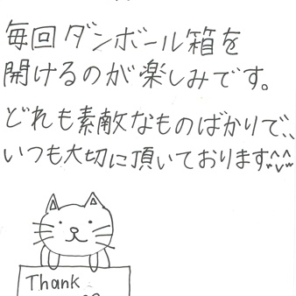 毎回ダンボール箱を
開けるのが楽しみです。
どれも素敵なものばかりで、
いつも大切に頂いております^^
Thank